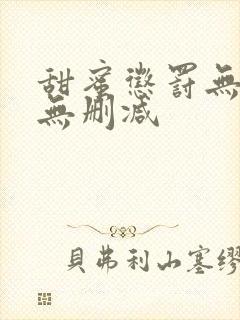 甜蜜懲罰無
無刪減
貝弗利山塞繆